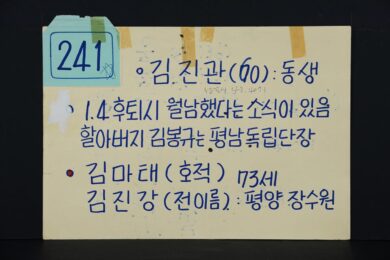 241
○ 김진관(60):동생
○ 1.4 후퇴시 월남했다는 소식이 있음
할아버지 김봉규는 평남독립단장
● 김마태(호적) 73세
김진강(전이름):평양 장수원